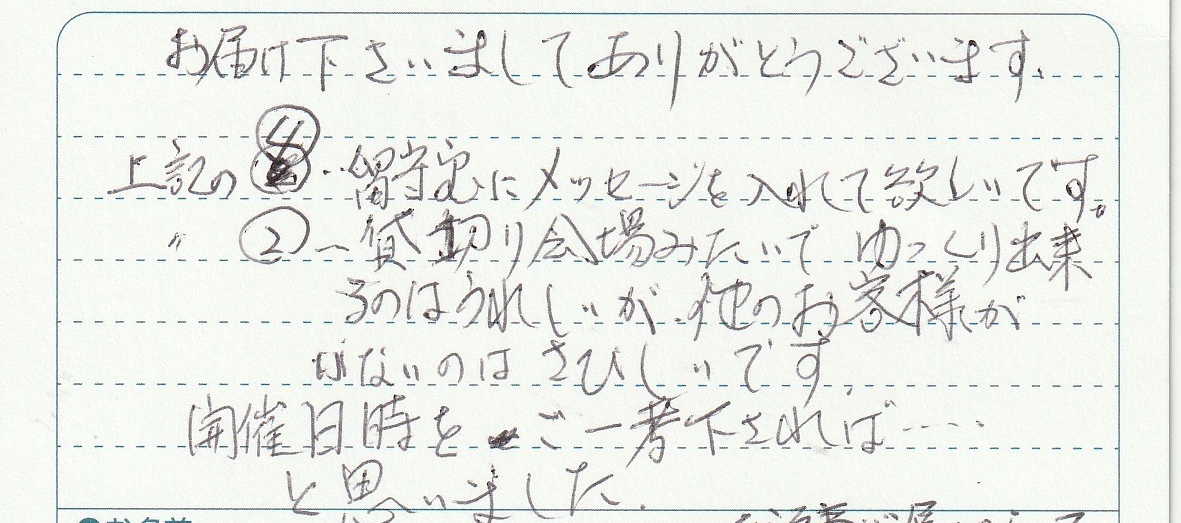 お届け下さいましてありがとうございます.
上記の④‥留守電にメッセージを入れて欲しいです。
〃 ②ー貸切り会場みたいでゆっくり出来
るのはうれしいが、他のお客様が
いないのはさびしいです.
開催日時をご一考下されば……
と思いました.
お名前